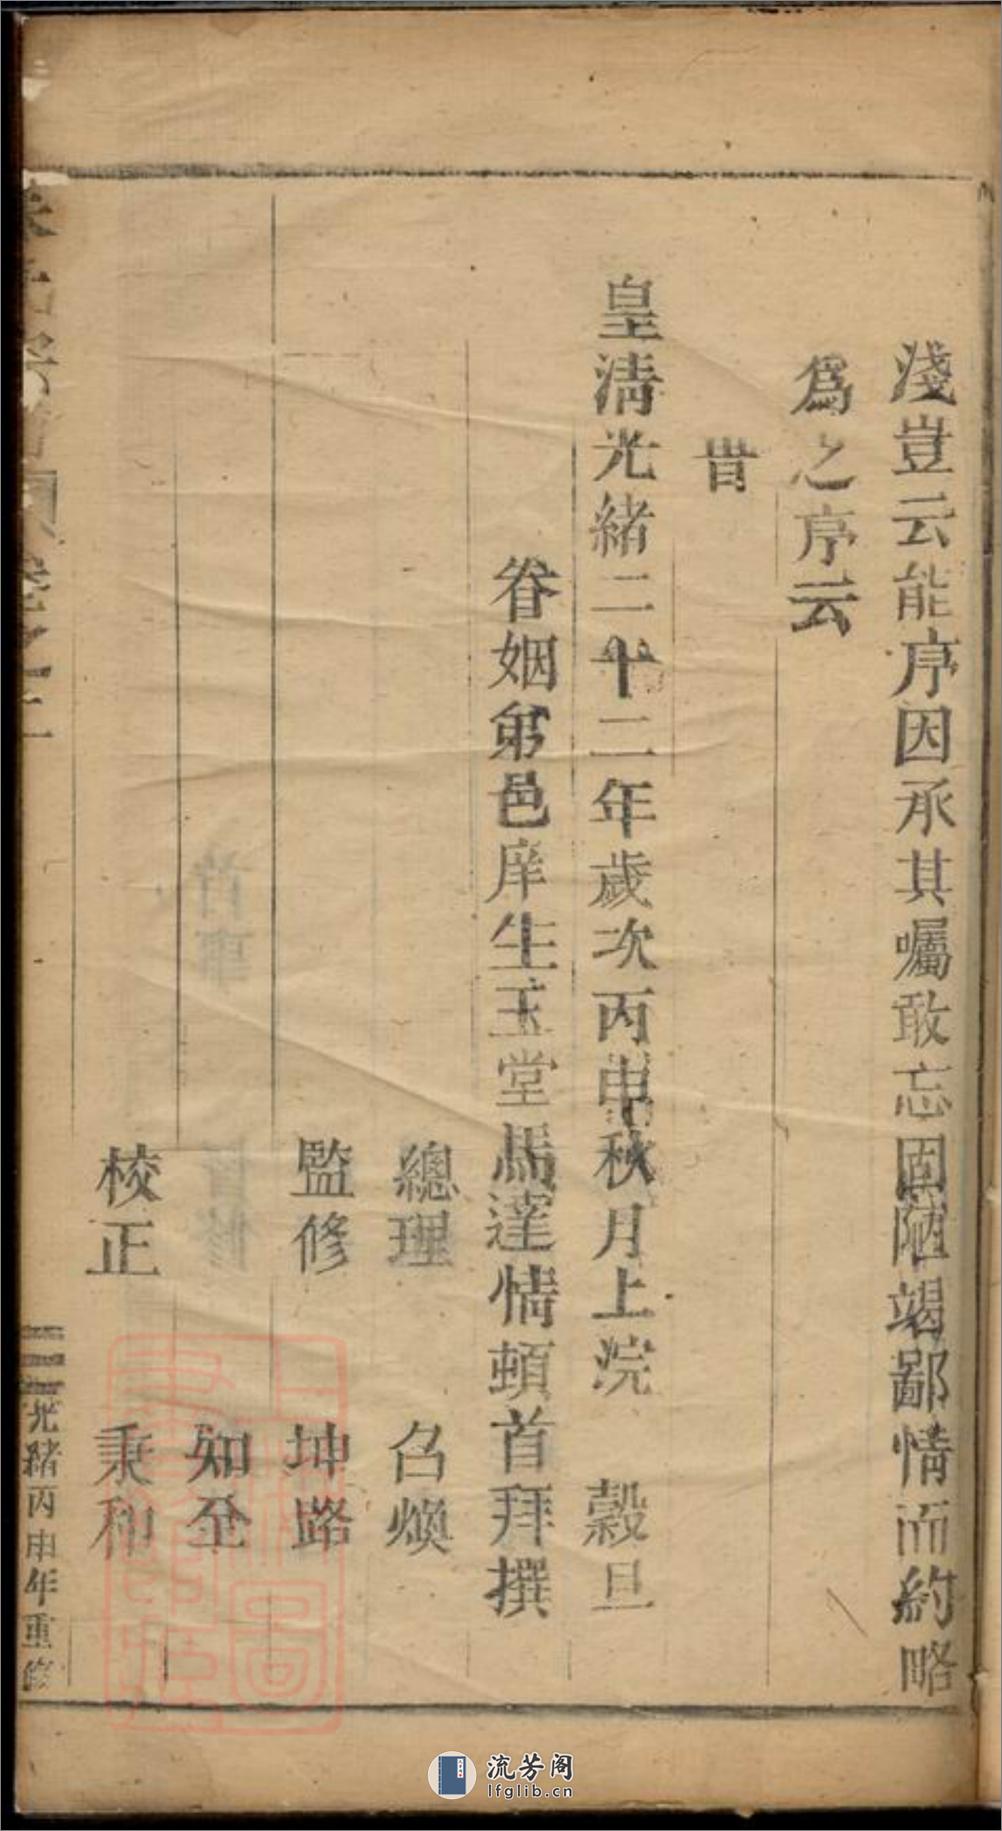 淺豈云能序因承其囑敢忘固陋竭鄙情而約略
爲之序云
旹
皇淸光緒二十二年歲次丙申秋月上浣 穀旦
眷姻弟邑庠生玉堂馬達情頓首拜撰
總理 召煥
監修 坤路
知至
校正 秉和
卷之二
三 光緒丙申年重修
流芳阁
lfglib.cn